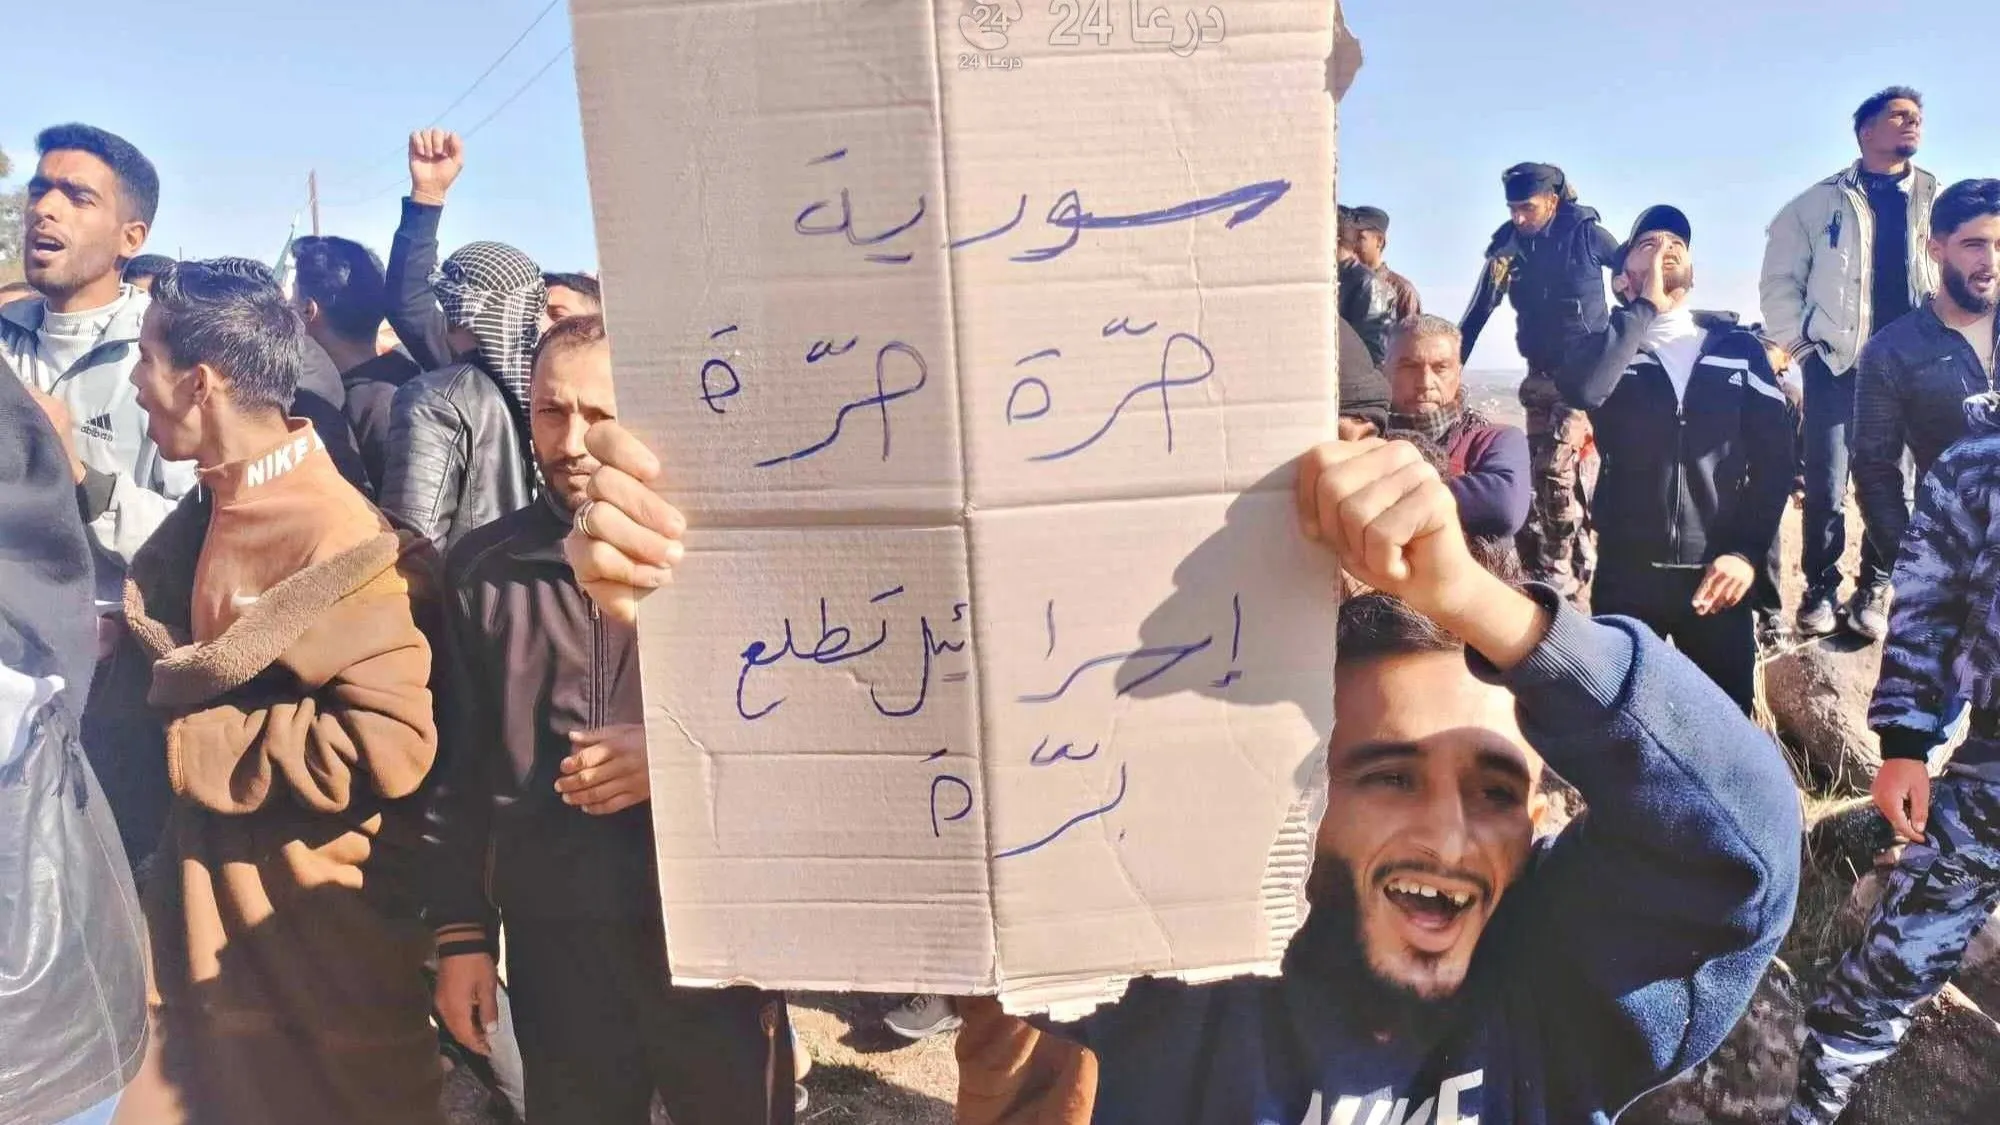 درعا 24
24
درعا 24
سورية
حرّة حرّة
إسرائيل تطلع
برّة
NIKE
adidas
NIKE